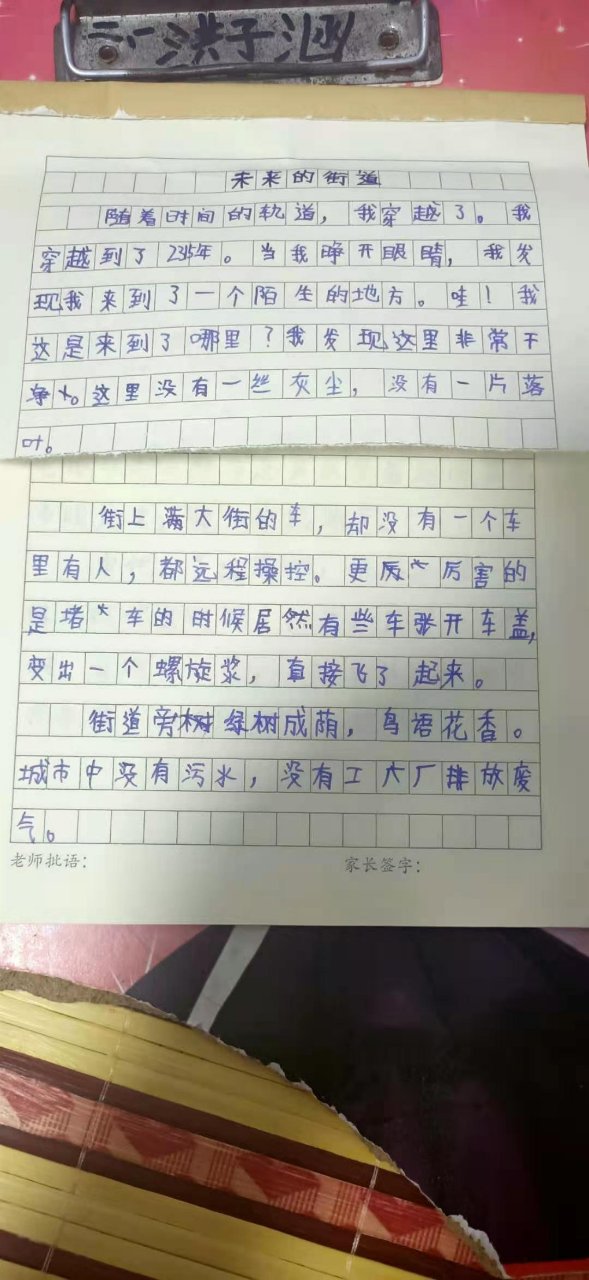 三、洪子涵
未来的街道
随着时间的轨道，我穿越了。我
穿越到了2315年。当我睁开眼睛，我发
现我来到了一个陌生的地方。哇！我
这是来到了哪里？我发现这里非常干
净。这里没有一丝灰尘，没有一片落
叶。
街上满大街的车，却没有一个车
里有人，都远程操控。更厉害的
是堵车的时候居然有些车张开车盖，
变出一个螺旋桨，直接飞了起来。
街道旁树绿树成荫，鸟语花香。
城市中没有污水，没有工大厂排放废
气。
老师批语：
家长签字：